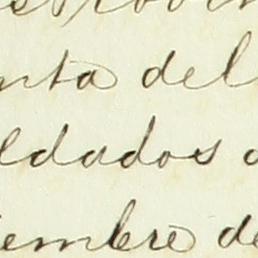 nta del
ldados
iembre de